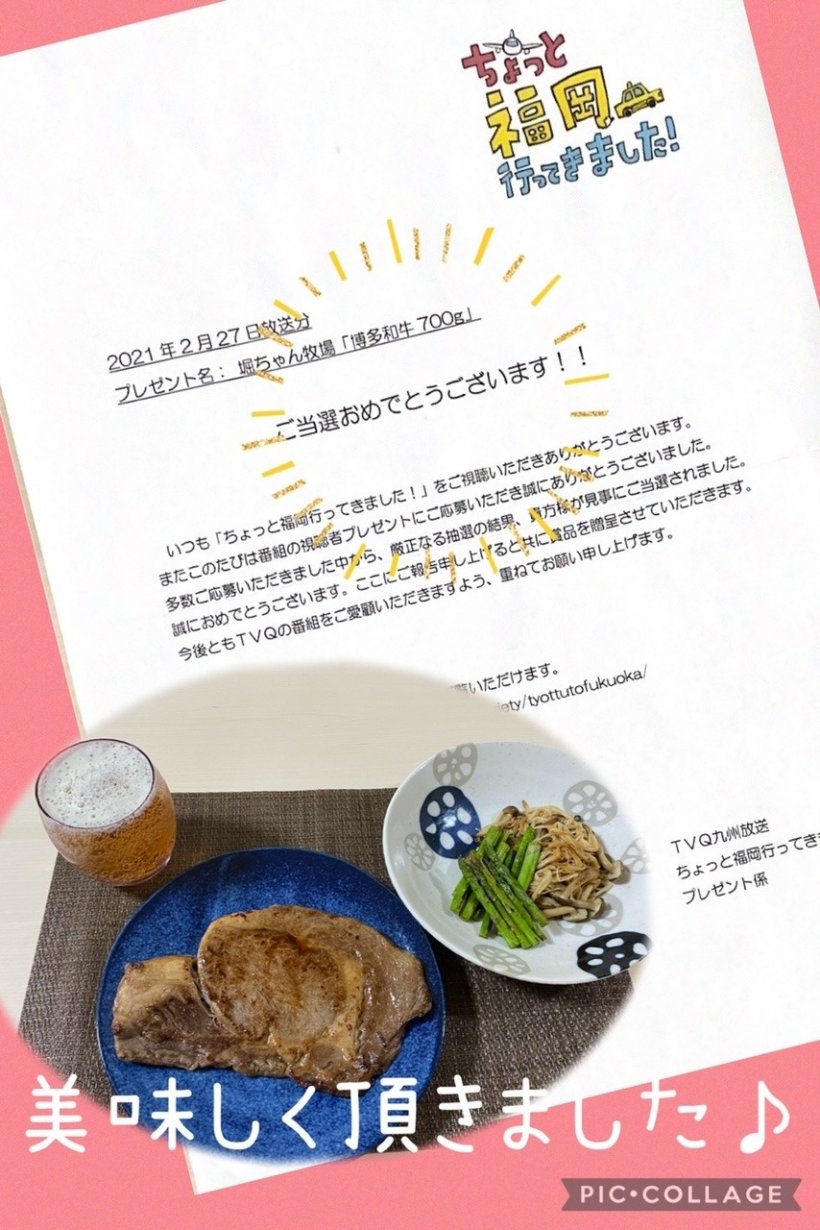 ちょっと
福岡
行ってきました!
2021年2月27日放送分
プレゼント名： 堀ちゃん牧場「博多和牛700g」
ご当選おめでとうございます！！
いつも「ちょっと福岡行ってきました！」をご視聴いただきありがとうございます。
またこのたびは番組の視聴者プレゼントにご応募いただき誠にありがとうございました。
多数ご応募いただきました中から、厳正なる抽選の結果、貴方様が見事にご当選されました。
誠におめでとうございます。ここにご報告申し上げると共に賞品を贈呈させていただきます。
今後ともTVQの番組をご愛顧いただきますよう、重ねてお願い申し上げます。
いただけます。
iety/tyottutofukuoka/
TVQ九州放送
ちょっと福岡行ってきま
プレゼント係
美味しく頂きました♪
PIC•COLLAGE